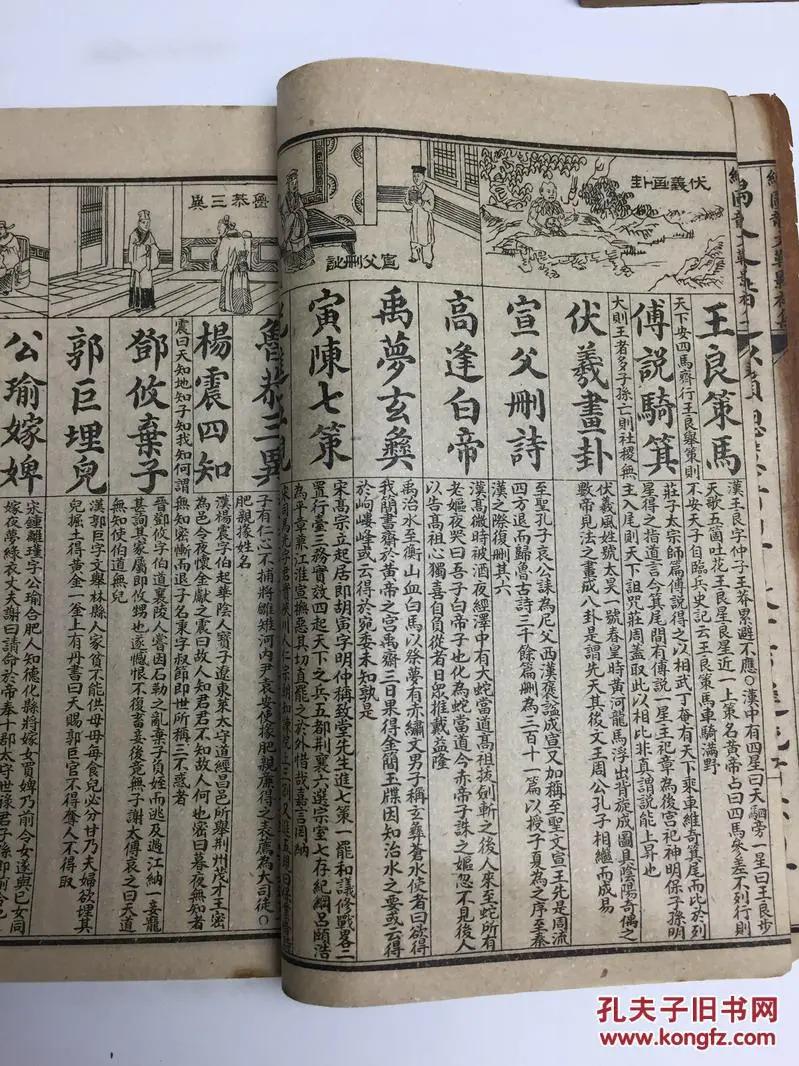 伏羲画卦
宣父刪詩
王良策馬
天下安四馬齊行王良舉策則
漢王良字仲子王莽累避不應○漢中有四星曰天駟旁一星曰王良步
天歌五箇吐花王良星良星近上一策名黄帝占曰四馬參差不列行則
不安天子自臨兵史記云王良策馬車騎滿野
傅説騎箕
大則王者多子孫亡則社稷無
莊子太宗師篇傅説得之以相武丁奄有天下乘東維奇箕尾而比於列
星得之指道言今箕尾間有傅説一星王祀章為後宮祀神明保子孫明
主入尾則天下詛咒莊周蓋取此以相比非真謂説能上昇也
伏羲畫卦
伏羲風姓號太昊一號春皇時黄河龍馬浮出背旋成圖具陰陽奇偶之
數帝見法之畫成八卦是謂先天其後文王周公孔子相繼而成易
宣父刪詩
至聖孔子哀公誄為尼父西漢褒謚成宣又加稱至聖文宣王先是周流
四方退而歸魯古詩三千餘篇刪為三百十一篇以授子夏為之序至秦
漢之際復刪其六
高逢白帝
漢高微時被酒夜經澤中有大蛇當道高祖拔劍斬之後人來至蛇所有
老嫗夜哭曰吾子白帝子也化為蛇當道今赤帝子誅之嫗忽不見後人
以告高祖心獨喜自負從者日眾推戴益隆
禹夢玄彝
禹治水至衡山血白馬以祭夢有赤繡文男子稱玄彝蒼水使者曰欲得
我簡書齋於黄帝之宮禹齋三日果得金簡玉牒因知治水之要或云得
於岣嶁峰或云得於宛委未知孰是
寅陳七策
宋高宗立起居即胡寅字明仲稱致堂先生進七策一罷和議修戰畧二
置行臺三務實效四起天下之兵五都荆襄六選宗室七存紀綱吕頤浩
為平章棄江淮宣撫惡其切直罷之於外惜哉嘉言罔納
魯恭三異
魯恭三異
子有仁心不捕將雛雉河内尹袁安使椽肥親廉得之表薦為大司徒○
肥親椽姓名
楊震四知
震曰天知地知子知我知何謂
漢楊震字伯起華陰人寶子遼東萊太守道經昌邑所舉荆州茂才王密
為邑令夜懷金獻之震曰故人知君君不知故人何也密曰暮夜無知者
無知密慚而退子名秉字叔節即世所稱三不惑者
鄧攸棄子
晉鄧攸字伯道襄陵人嘗因石勒之亂棄子負姪而逃及過江納一妾寵
甚詢其家屬即攸甥也遂憾恨不復畜妾後竟無子謝太傅哀之曰天道
無知使伯道無兒
郭巨埋兒
漢郭巨字文舉林縣人家貧不能供母母每食兒必分甘乃夫婦欲埋其
兒掘土得黄金一釜上有丹書曰天賜郭巨官不得奪人不得取
公瑜嫁婢
宋鍾離瑾字公瑜合肥人知德化縣將嫁女買婢乃前令女遂與已女同
嫁夜夢綠衣丈夫謝曰請命於帝奉十郡太守世祿君子孫即前令也
孔夫子旧书网
www.kongfz.com